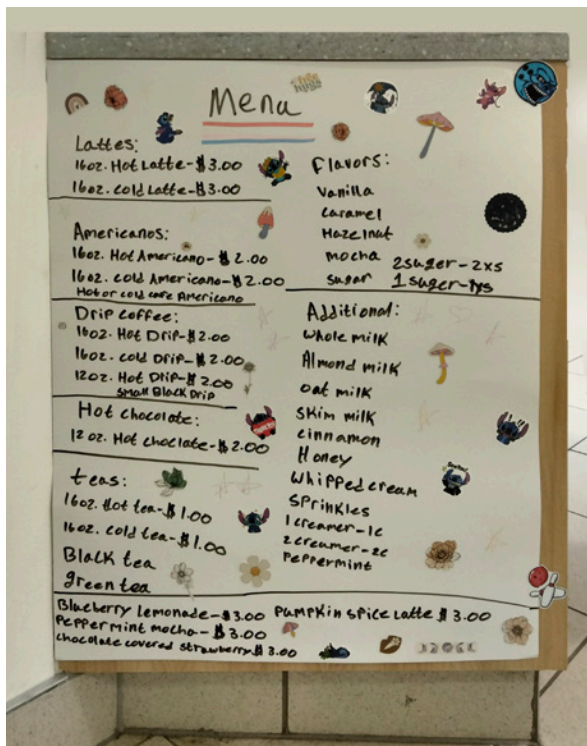 free hugs
Menu
Lattes:
16oz. Hot Latte-$3.00
16oz. cold Latte-$3.00
Americanos:
16oz. Hot Americano-$2.00
16oz. cold Americano-$2.00
Hot or cold cafe Americano
Drip coffee:
16oz. Hot Drip-$2.00
16oz. cold Drip-$2.00
12oz. Hot Drip-$2.00
small Black Drip
Hot chocolate:
12 oz. Hot choclate-$2.00
teas:
16oz. Hot tea-$1.00
16oz. cold tea-$1.00
Black tea
green tea
Flavors:
Vanilla
caramel
Hazelnut
mocha 2suger-2xs
sugar 1suger-
Additional:
whole milk
Almond milk
oat milk
skim milk
cinnamon
Honey
whipped cream
sprinkles
1creamer-1c
2creamer-2c
peppermint
Blueberry Lemonade-$3.00 pumpkin spice Latte $3.00
peppermint mocha-$3.00
chocolate covered strawberry $3.00